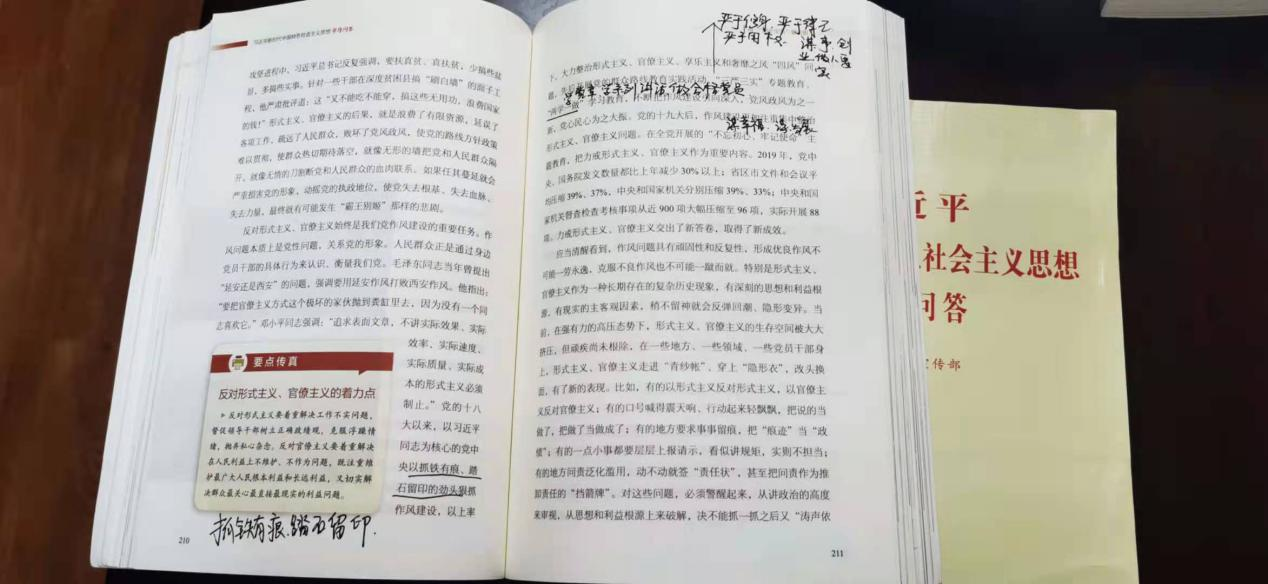 习近平新时代中国特色社会主义思想学习问答
攻坚进程中，习近平总书记反复强调，要扶真贫、真扶贫，少搞些盆
景，多搞些实事。针对一些干部在深度贫困县搞“刷白墙”的面子工
程，他严肃批评道：这“又不能吃不能穿，搞这些无用功，浪费国家
的钱！”形式主义、官僚主义的后果，就是浪费了有限资源，延误了
各项工作，疏远了人民群众，败坏了党风政风，使党的路线方针政策
难以贯彻，使群众热切期待落空，就像无形的墙把党和人民群众隔
开，就像无情的刀割断党和人民群众的血肉联系。如果任其蔓延就会
严重损害党的形象，动摇党的执政地位，使党失去根基、失去血脉、
失去力量，最终就有可能发生“霸王别姬”那样的悲剧。
反对形式主义、官僚主义始终是我们党作风建设的重要任务。作
风问题本质上是党性问题，关系党的形象。人民群众正是通过身边
党员干部的具体行为来认识、衡量我们党。毛泽东同志当年曾提出
“延安还是西安”的问题，强调要用延安作风打败西安作风。他指出：
“要把官僚主义方式这个极坏的家伙抛到粪缸里去，因为没有一个同
志喜欢它。”邓小平同志强调：“追求表面文章，不讲实际效果、实际
效率、实际速度、
实际质量、实际成
本的形式主义必须
制止。”党的十八
大以来，以习近平
同志为核心的党中
央以抓铁有痕、踏
石留印的劲头狠抓
作风建设，以上率
要点传真
反对形式主义、官僚主义的着力点
反对形式主义要着重解决工作不实问题，
督促领导干部树立正确政绩观，克服浮躁情
绪，抛弃私心杂念。反对官僚主义要着重解决
在人民利益上不维护、不作为问题，既注重维
护最广大人民根本利益和长远利益，又切实解
决群众最关心最直接最现实的利益问题。
抓铁有痕、踏石留印.
210
严于修身、严于律己
严于用权
谋事 创
业 做人要
实
下，大力整治形式主义、官僚主义、享乐主义和奢靡之风“四风”问
题，先后开展党的群众路线教育实践活动、“三严三实”专题教育、
“两学一做”学习教育，不断把作风建设引向深入，党风政风为之一
新，党心民心为之大振。党的十九大后，作风建设
形式主义、官僚主义问题。在全党开展的“不忘初心、牢记使命”主
题教育，把力戒形式主义、官僚主义作为重要内容。2019年，党中
央、国务院发文数量都比上年减少30%以上；省区市文件和会议平
均压缩39%、37%，中央和国家机关分别压缩39%、33%；中央和国
家机关督查检查考核事项从近900项大幅压缩至96项，实际开展88
项。力戒形式主义、官僚主义交出了新答卷，取得了新成效。
应当清醒看到，作风问题具有顽固性和反复性，形成优良作风不
可能一劳永逸，克服不良作风也不可能一蹴而就。特别是形式主义、
官僚主义作为一种长期存在的复杂历史现象，有深刻的思想和利益根
源，有现实的主客观因素，稍不留神就会反弹回潮、隐形变异。当
前，在强有力的高压态势下，形式主义、官僚主义的生存空间被大大
挤压，但顽疾尚未根除，在一些地方、一些领域、一些党员干部身
上，形式主义、官僚主义走进“青纱帐”、穿上“隐形衣”，改头换
面，有了新的表现。比如，有的以形式主义反对形式主义，以官僚主
义反对官僚主义；有的口号喊得震天响、行动起来轻飘飘，把说的当
做了，把做了当做成了；有的地方要求事事留痕，把“痕迹”当“政
绩”；有的一点小事都要层层上报请示，看似讲规矩，实则不担当；
有的地方问责泛化滥用，动不动就签“责任状”，甚至把问责作为推
卸责任的“挡箭牌”。对这些问题，必须警醒起来，从讲政治的高度
来审视，从思想和利益根源上来破解，决不能抓一抓之后又“涛声依
211
近平
社会主义思想
问答
传部